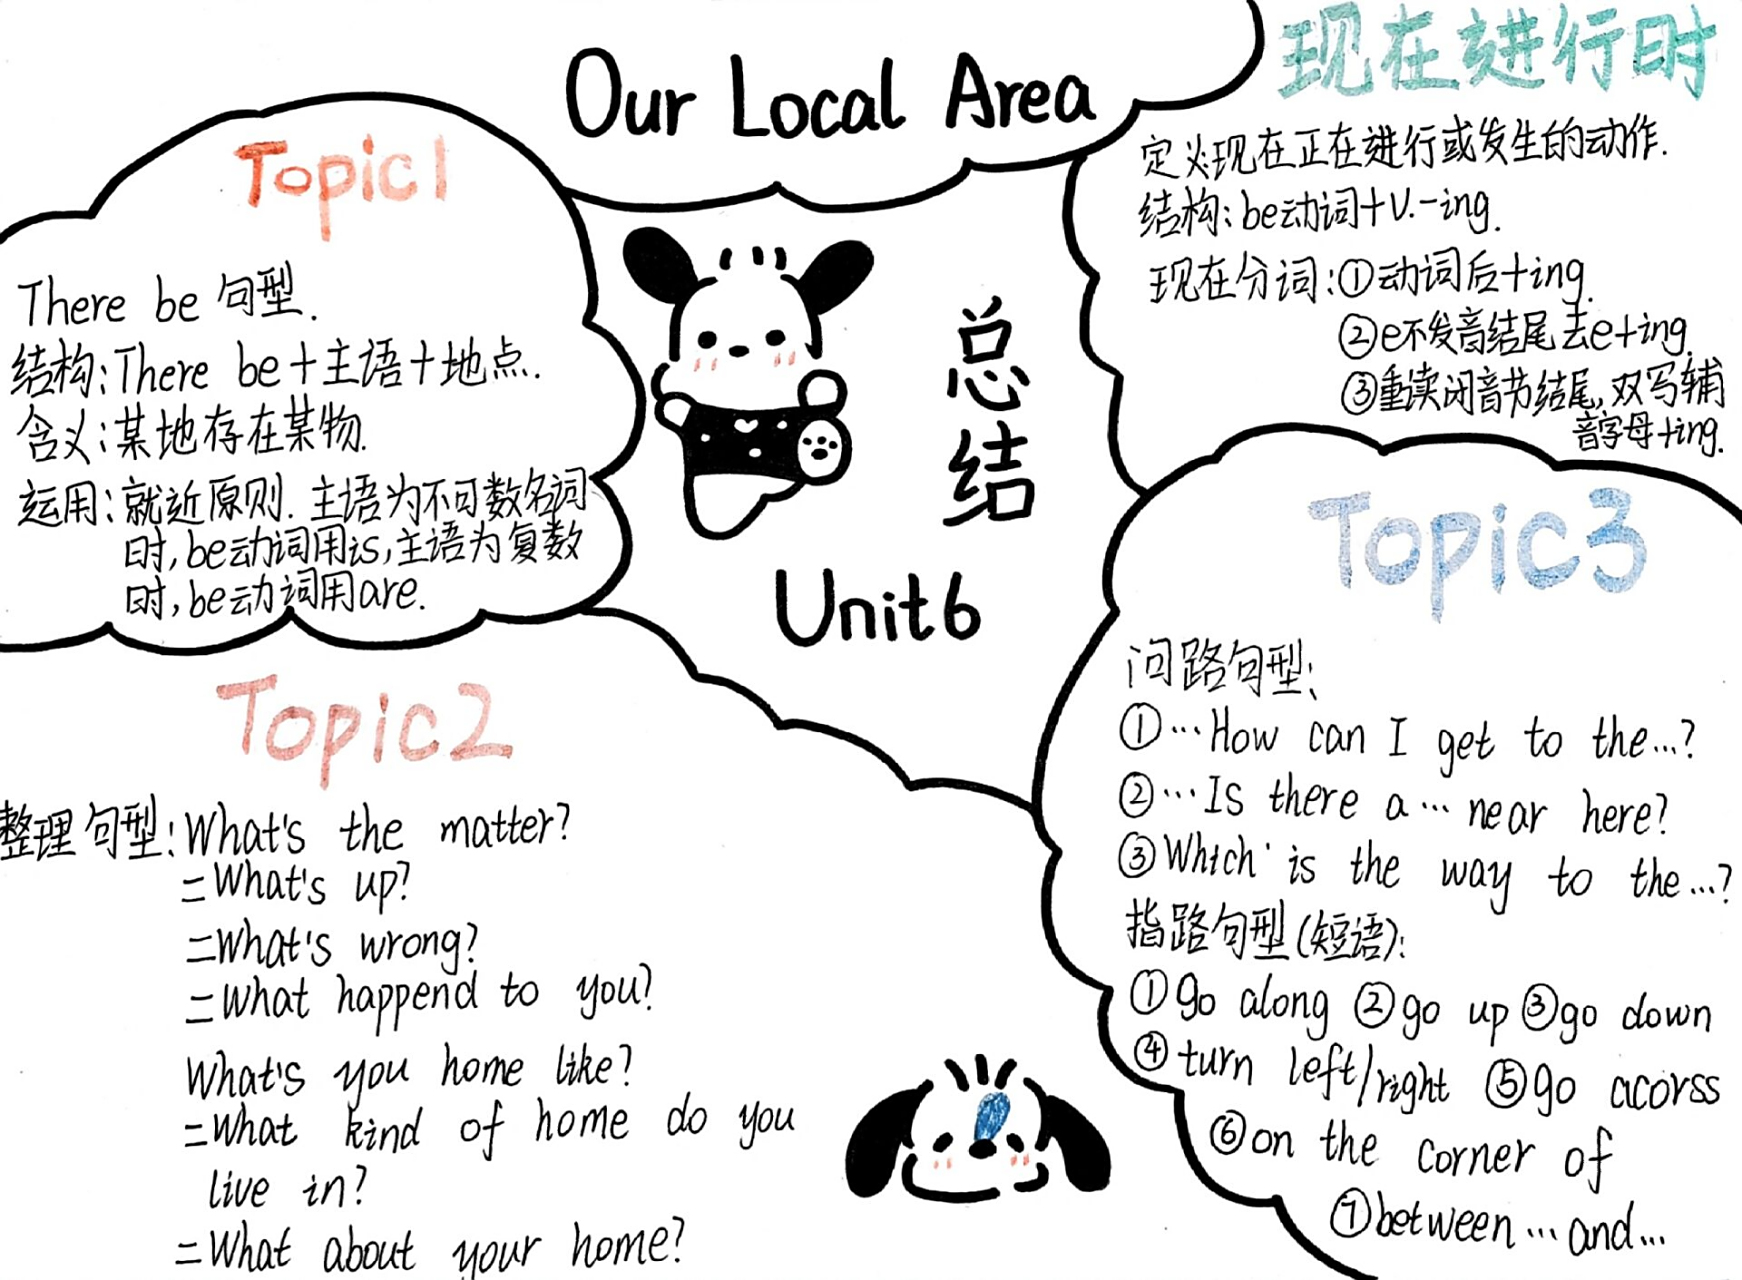 Our Local Area
总结
Unit6
Topic1
There be 句型.
结构:There be+主语+地点.
含义:某地存在某物.
运用:就近原则.主语为不可数名词
时,be动词用is,主语为复数
时,be动词用are.
现在进行时
定义:现在正在进行或发生的动作.
结构:be动词+V.-ing.
现在分词:①动词后+ing.
②e不发音结尾去e+ing.
③重读闭音节结尾,双写辅
音字母+ing.
Topic2
整理句型:What's the matter?
=What's up?
=What's wrong?
=What happend to you?
What's you home like?
=What kind of home do you
live in?
=What about your home?
Topic3
问路句型:
①…How can I get to the…?
②…Is there a…near here?
③Which is the way to the…?
指路句型(短语):
①go along ②go up ③go down
④turn left/right ⑤go acorss
⑥on the corner of
⑦between…and…